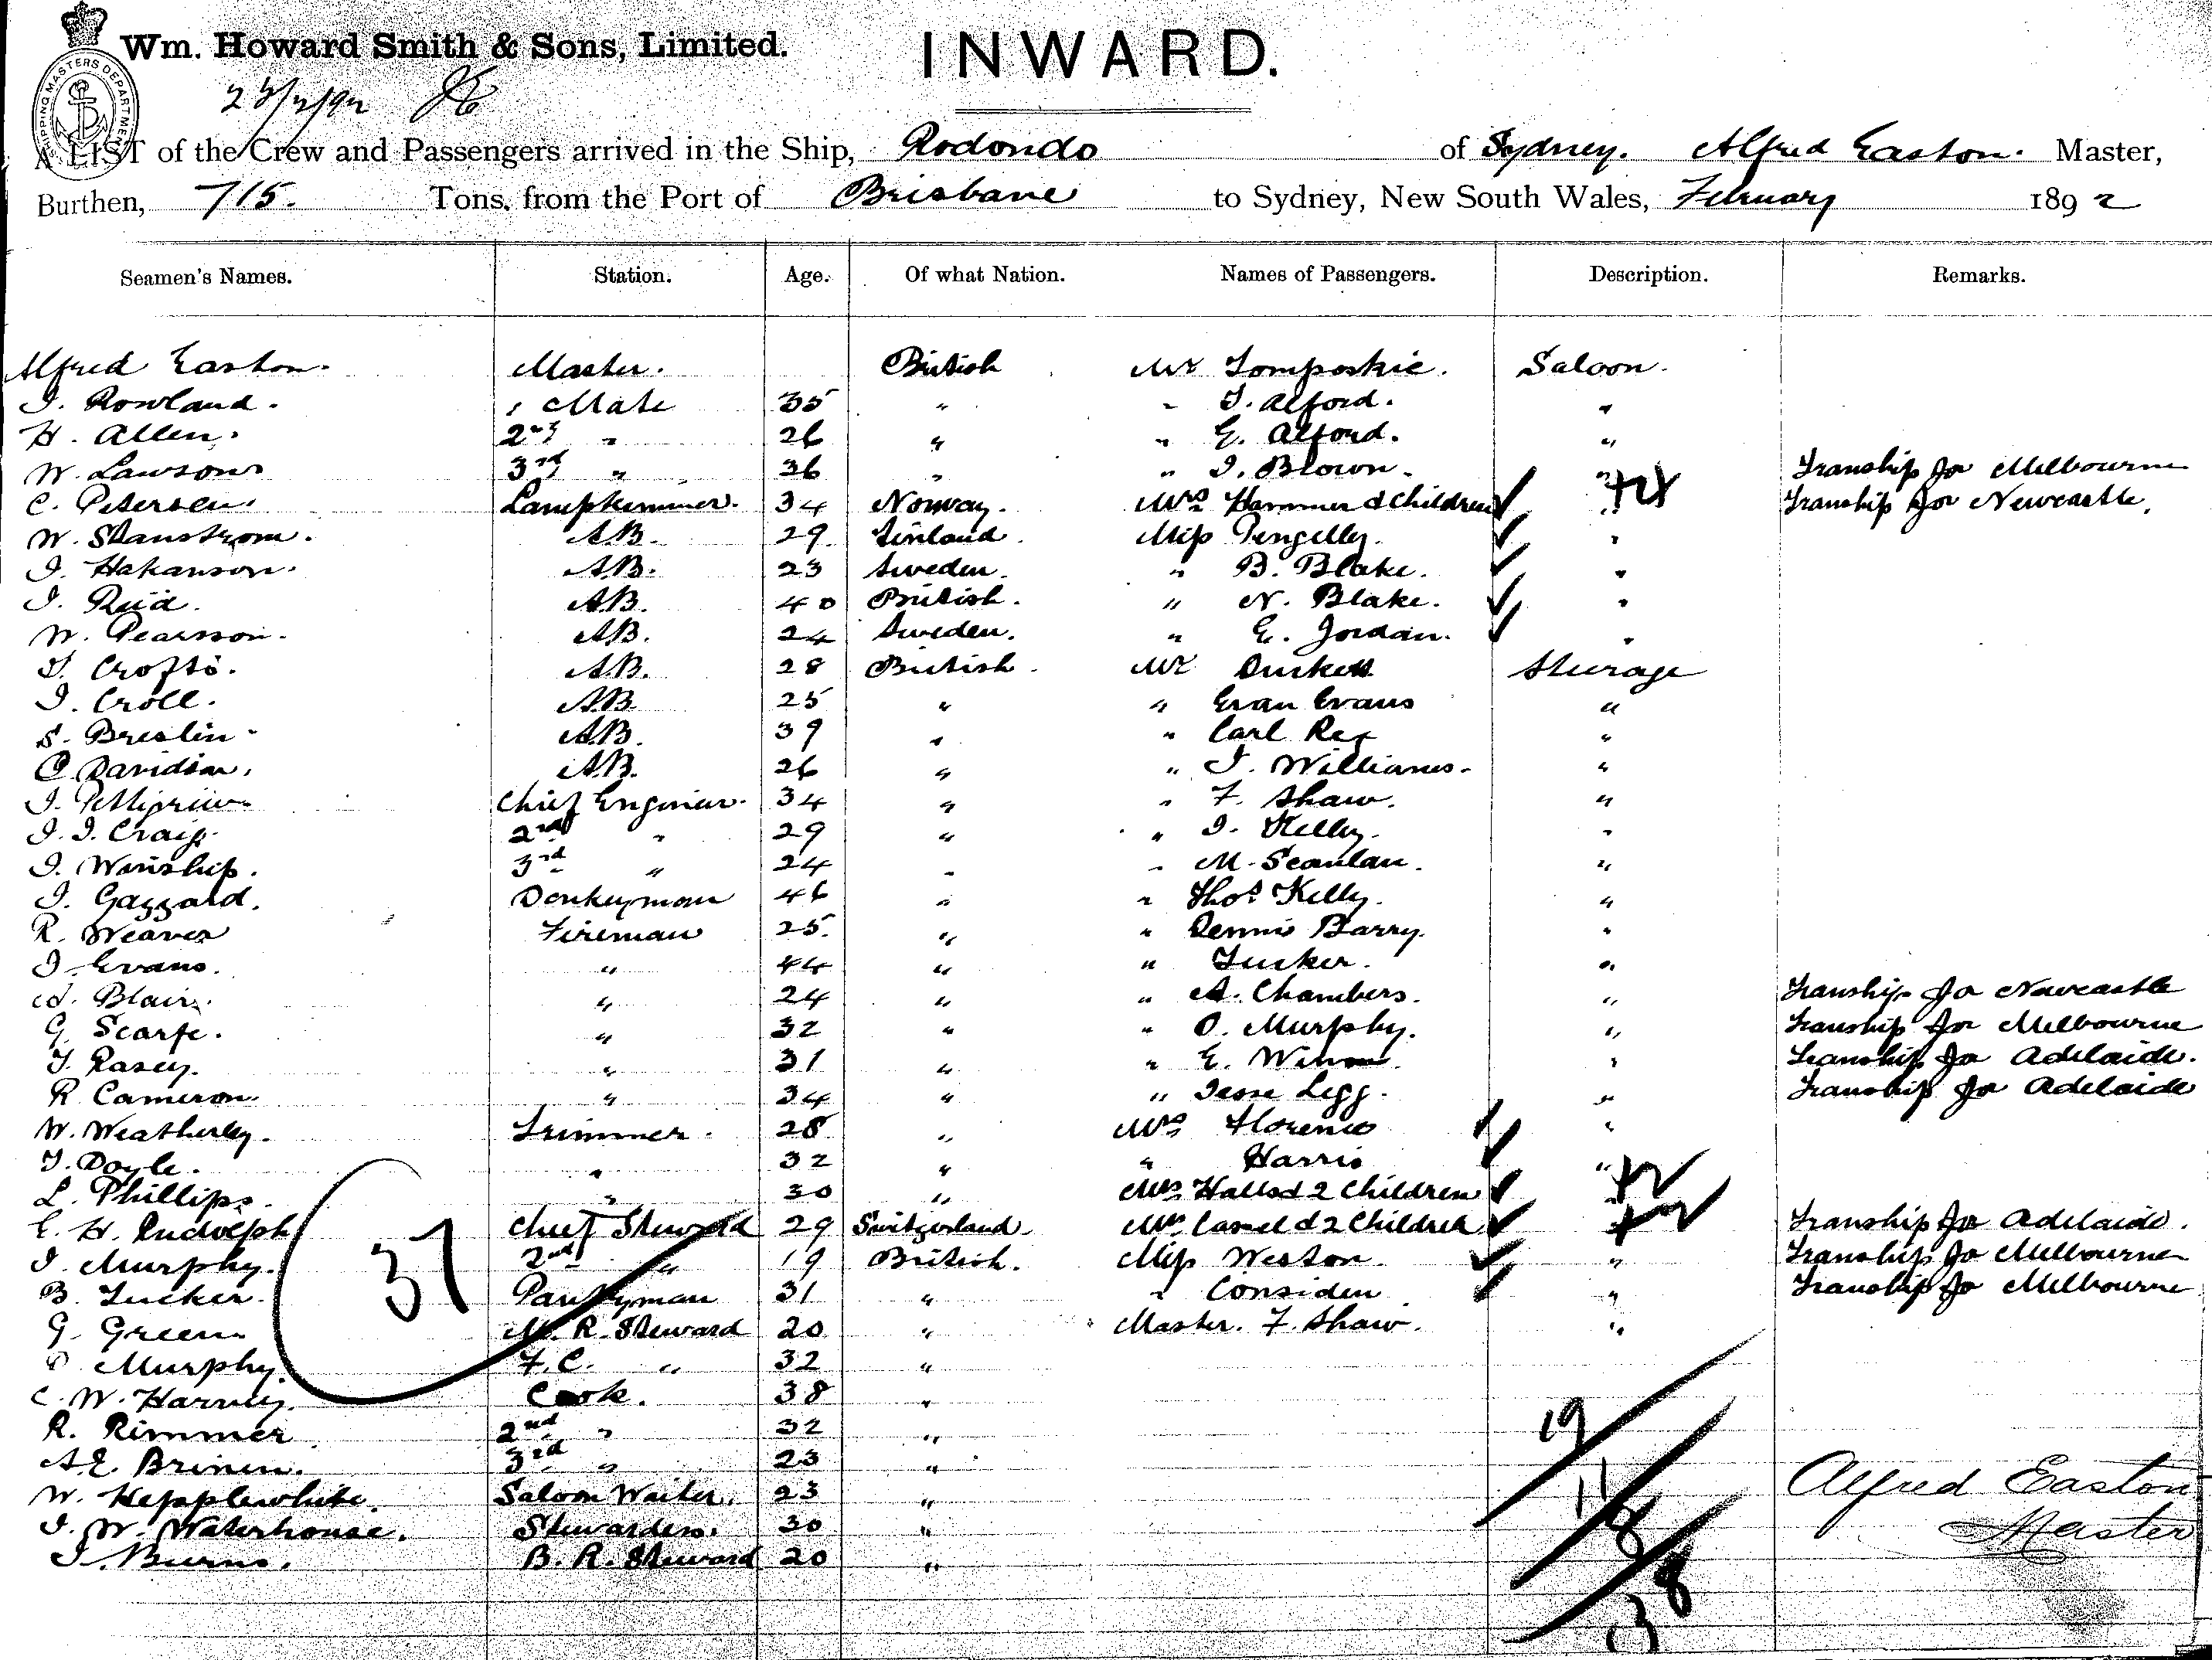 Wm. Howard Smith & Sons, Limited.
INWARD.
SHIPPING MASTERS DEPARTMENT
A LIST of the Crew and Passengers arrived in the Ship, Rodondo of Sydney. Alfred Easton. Master,
Burthen, 715. Tons, from the Port of Brisbane to Sydney, New South Wales, February 1892
Seamen's Names. Station. Age. Of what Nation. Names of Passengers. Description. Remarks.
Alfred Easton. Master. British Mr Saloon.
J. Rowland. 1 Mate 35 " " J. Alford. "
H. Allen. 2nd " 26 " " E. Alford. "
W. Lawson 3rd " 36 " " J. Brown. " Tranship for Melbourne
C. Petersen. Lamptrimmer. 34 Norway. Mrs Hammer & Children " Tranship for Newcastle.
W. Stanstrom. A.B. 29 Finland. Miss Pengelly. "
J. Hakanson. A.B. 23 Sweden. " B. Blake. "
J. Reid. A.B. 40 British. " N. Blake. "
W. Pearsson. A.B. 24 Sweden. " E. Jordan. "
T. Crofts. A.B. 28 British. Mr Duckett Steerage
J. Croll. A.B. 25 " " Evan Evans "
S. Breslin A.B. 39 " " Carl "
C. Davidson. A.B. 26 " " J. Williams. "
J. Pettigrew Chief Engineer. 34 " " F. Shaw. "
J. J. Craig. 2nd " 29 " " J. Kelly. "
J. Winship. 3rd " 24 " " M. Scanlan. "
J. Gazzard. Donkeyman 46 " " Thos Kelly. "
R. Weaver Fireman 25. " " Dennis Barry. "
J. Evans. " 44 " " Tucker. "
Blair. " 24 " " A. Chambers. " Tranship for Newcastle
G. Scarfe. " 32 " " O. Murphy. " Tranship for Melbourne
T. Rasey. " 31 " " E. " Tranship for Adelaide.
R. Cameron. " 34 " " Jesse Legg. " Tranship for Adelaide
W. Weatherley. Trimmer. 28 " Mrs Florence "
T. Doyle. " 32 " " Harris "
L. Phillips. " 30 " Mrs & 2 Children "
E. H. Rudolph Chief Steward 29 Switzerland. Mrs & 2 Children " Tranship for Adelaide.
J. Murphy. 2nd " 19 British. Miss Weston. " Tranship for Melbourne
B. Tucker. Pantryman 31 " " Considen " Tranship for Melbourne
G. Green. M. R. Steward 20 " Master. F. Shaw. "
Murphy. F.C. " 32 "
37
C. W. Cook. 38 "
R. Rimmer 2nd " 32 "
19
A. E. 3rd " 23 "
W. Hepplewhite. Saloon Waiter. 23 " 11 Alfred Easton
J. W. Waterhouse. Stewardess. 30 " 8 Master
J. Burns. B. R. Steward 20 "
38